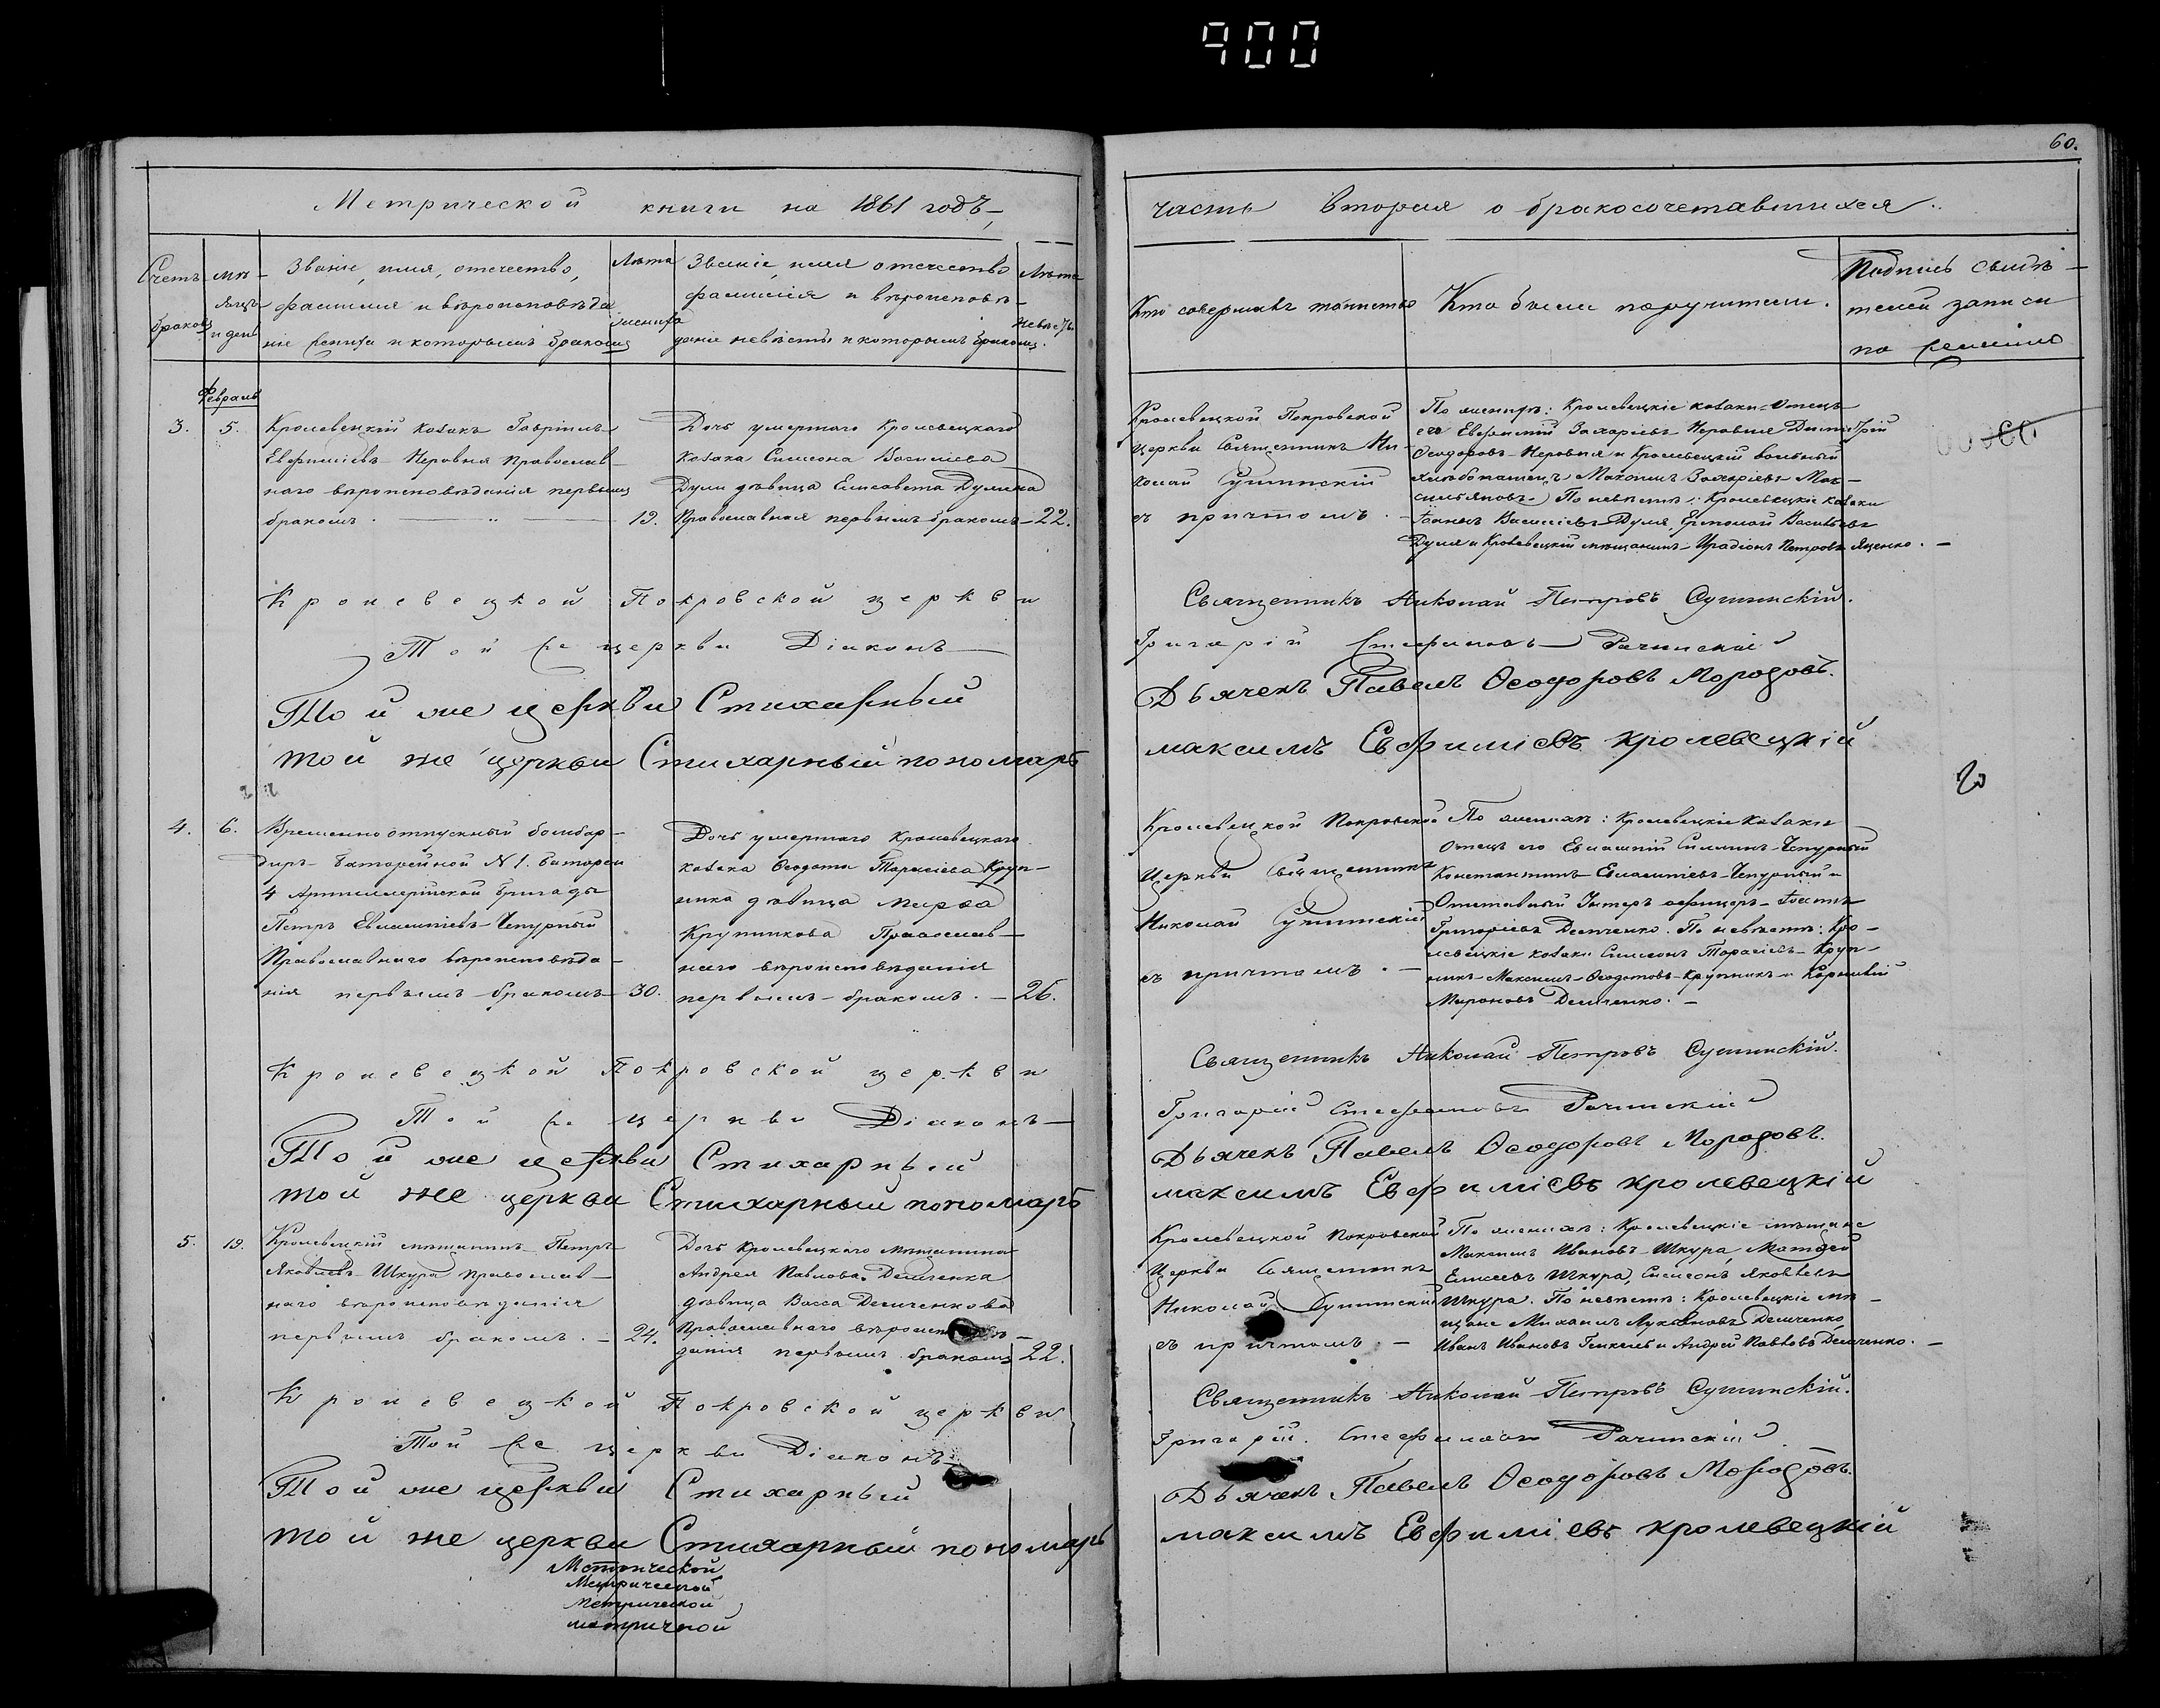 900
60.
Метрической книги на 1861 годъ,
часть вторая о бракосочетавшихся.
Счетъ браковъ
мѣсяцъ и день
Званіе, имя, отечество, фамилія и вѣроисповѣданіе жениха и которымъ бракомъ
Лѣта жениха
Званіе, имя отечество фамилія и вѣроисповѣданіе невѣсты и которымъ бракомъ.
Лѣта невѣсты
Кто совершалъ таинство
Кто были поручители.
Подпись свидѣтелей записи по желанію
Февраль
3. 5.
Кролевецкій козакъ Гавріилъ
Евфиміевъ Неровня Православ-
наго вѣроисповѣданія первымъ
бракомъ. 19.
Дочь умершаго Кролевецкаго
козака Симеона Василіева
Дули дѣвица Елисавета Дулина
Православная первымъ бракомъ 22.
Кролевецкой Покровской
церкви Священникъ Ни-
колай Сушинскій
съ причтомъ.
По женихѣ: Кролевецкіе козаки Отецъ
его Евфимій Захаріевъ Неровня Димитрій
Ѳеодоровъ Неровня и Кролевецкій вольный
хлѣбопашецъ Максимъ Захаріевъ Мак-
симьяновъ. По невѣстѣ: Кролевецкіе козаки
Іоаннъ Василіевъ Дуля, Ермолай Васильевъ
Дуля и Кролевецкій мѣщанинъ Иродіонъ Петровъ Яценко.
Кролевецкой Покровской церкви Священникъ Николай Петровъ Сушинскій.
Той же церкви Діаконъ Григорій Стефановъ Рачинскій
Той же церкви Стихарный Дьячекъ Павелъ Ѳеодоровъ Мороговъ.
той же церкви Стихарный пономарь максимъ Евфиміевъ кролевецкій
4. 6.
Временно отпускный бомбар-
диръ Баторейной N 1. батареи
4 Артиллерійской бригады
Петръ Евлампіевъ Чепурный
Православнаго вѣроисповѣда-
нія первымъ бракомъ 30.
Дочь умершаго Кролевецкаго
козака Ѳеодота Тарасіева Круп-
ника дѣвица Марѳа
Крупникова Православ-
наго вѣроисповѣданія
первымъ бракомъ. 26.
Кролевецкой Покровской
Церкви Священникъ
Николай Сушинскій
съ причтомъ.
По женихѣ: Кролевецкіе козаки
Отецъ его Евлампій Чепурный
Константинъ Евлампіевъ Чепурный и
Отставный Унтеръ офицеръ Іоаннъ
Григоріевъ Демченко. По невѣстѣ: Кро-
левецкіе козаки Симеонъ Тарасіевъ Круп-
никъ Максимъ Ѳеодотовъ Крупникъ и Корнилій
Мироновъ Демченко.
Кролевецкой Покровской церкви Священникъ Николай Петровъ Сушинскій.
Той же церкви Діаконъ Григорій Стефановъ Рачинскій
Той же церкви Стихарный Дьячекъ Павелъ Ѳеодоровъ Мороговъ.
той же церкви Стихарный пономарь максимъ Евфиміевъ кролевецкій
5. 19.
Кролевецкій мѣщанинъ Петръ
Яковлевъ Шкура православ-
наго вѣроисповѣданія
первымъ бракомъ. 24.
Дочь Кролевецкаго мѣщанина
Андрея Павлова Демченка
дѣвица Васса Демченкова
Православнаго вѣроисповѣ-
данія первымъ бракомъ 22.
Кролевецкой Покровской
Церкви Священникъ
Николай Сушинскій
съ причтомъ.
По женихѣ: Кролевецкіе мѣщане
Максимъ Ивановъ Шкура, Матѳей
Елисеевъ Шкура, Симеонъ Яковлевъ
Шкура. По невѣстѣ: Кролевецкіе мѣ-
щане Михаилъ Демченко,
Иванъ Ивановъ и Андрей Павловъ Демченко.
Кролевецкой Покровской церкви Священникъ Николай Петровъ Сушинскій.
Той же церкви Діаконъ Григорій Стефановъ Рачинскій
Той же церкви Стихарный Дьячекъ Павелъ Ѳеодоровъ Мороговъ.
той же церкви Стихарный пономарь максимъ Евфиміевъ кролевецкій
Метрической
Метрической
Метрической
метричной